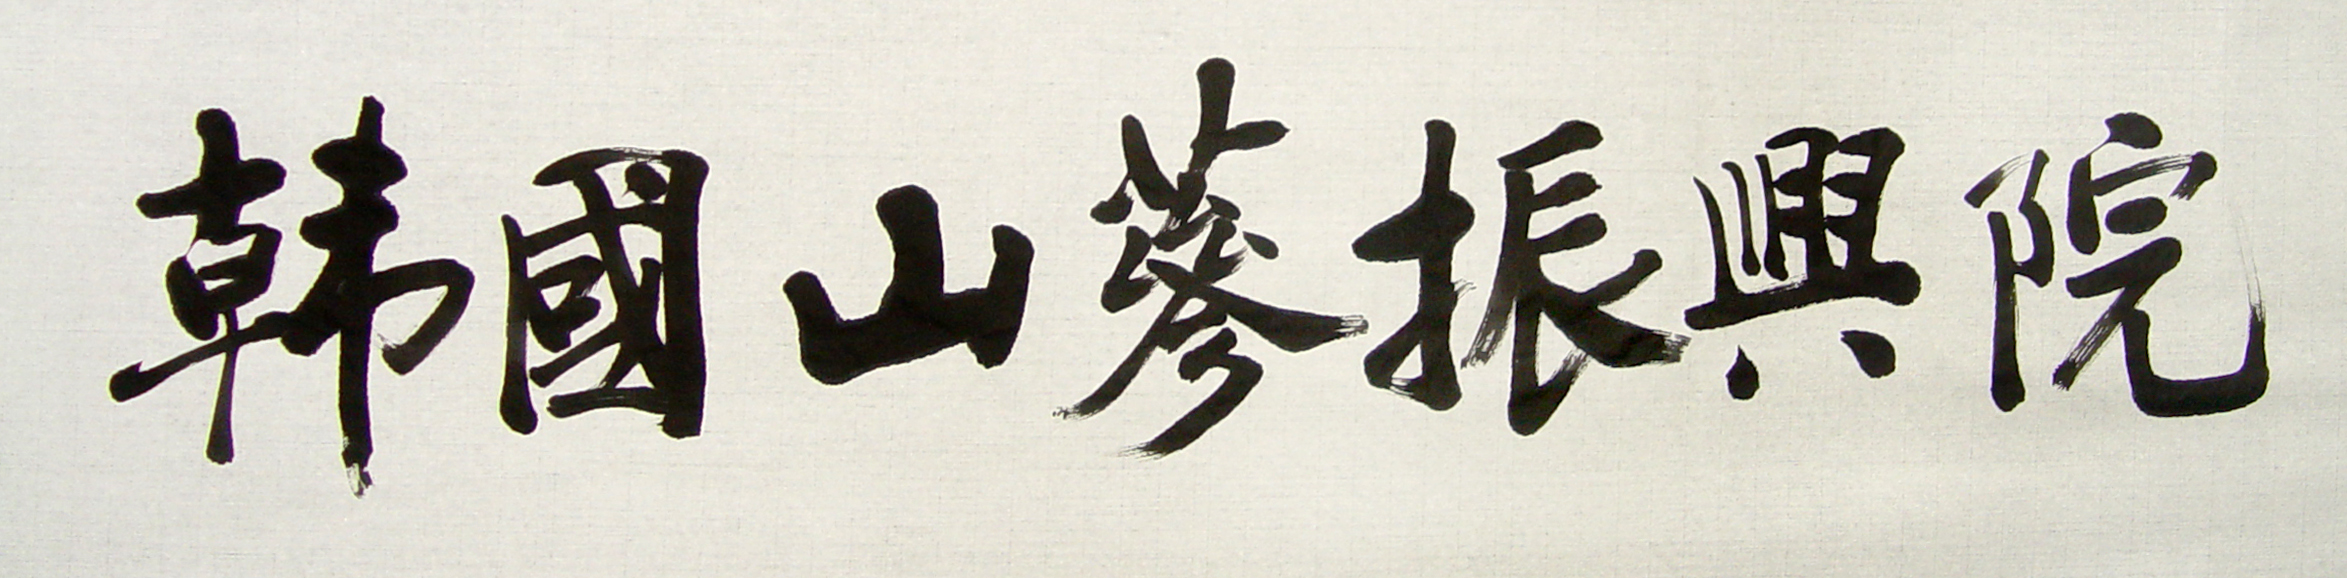 韓國山蔘振興院